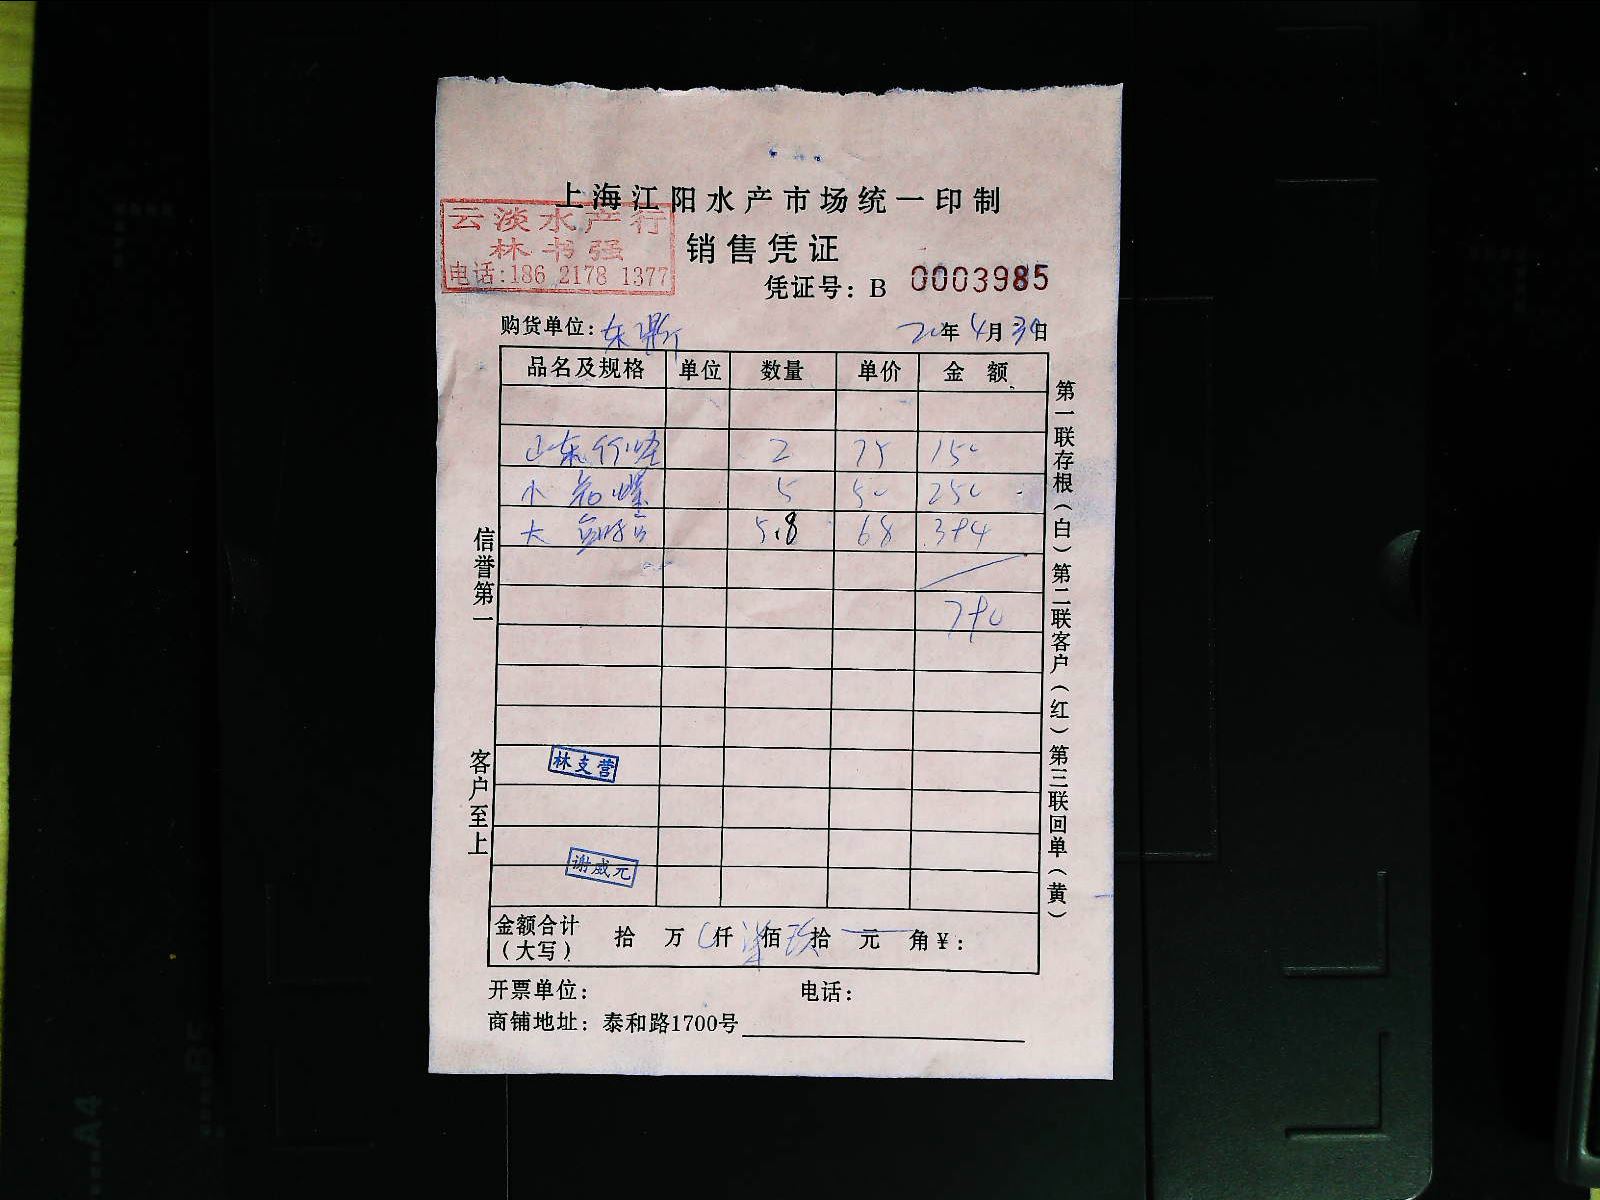 上海江阳水产市场统一印制
云淡水产行
林书强
电话:186 2178 1377
销售凭证
凭证号: B 0003985
购货单位:东鼎
20年4月30日
品名及规格 单位 数量 单价 金额
山东竹蛏 2 75 150
小 花螺 5 50 250
大 5.8 68 394
790
林支营
谢威元
金额合计(大写) 拾 万 仟 柒佰玖拾 元 角¥:
开票单位: 电话:
商铺地址: 泰和路1700号
信誉第一
客户至上
第一联存根(白)第二联客户(红)第三联回单(黄)
A4
B5